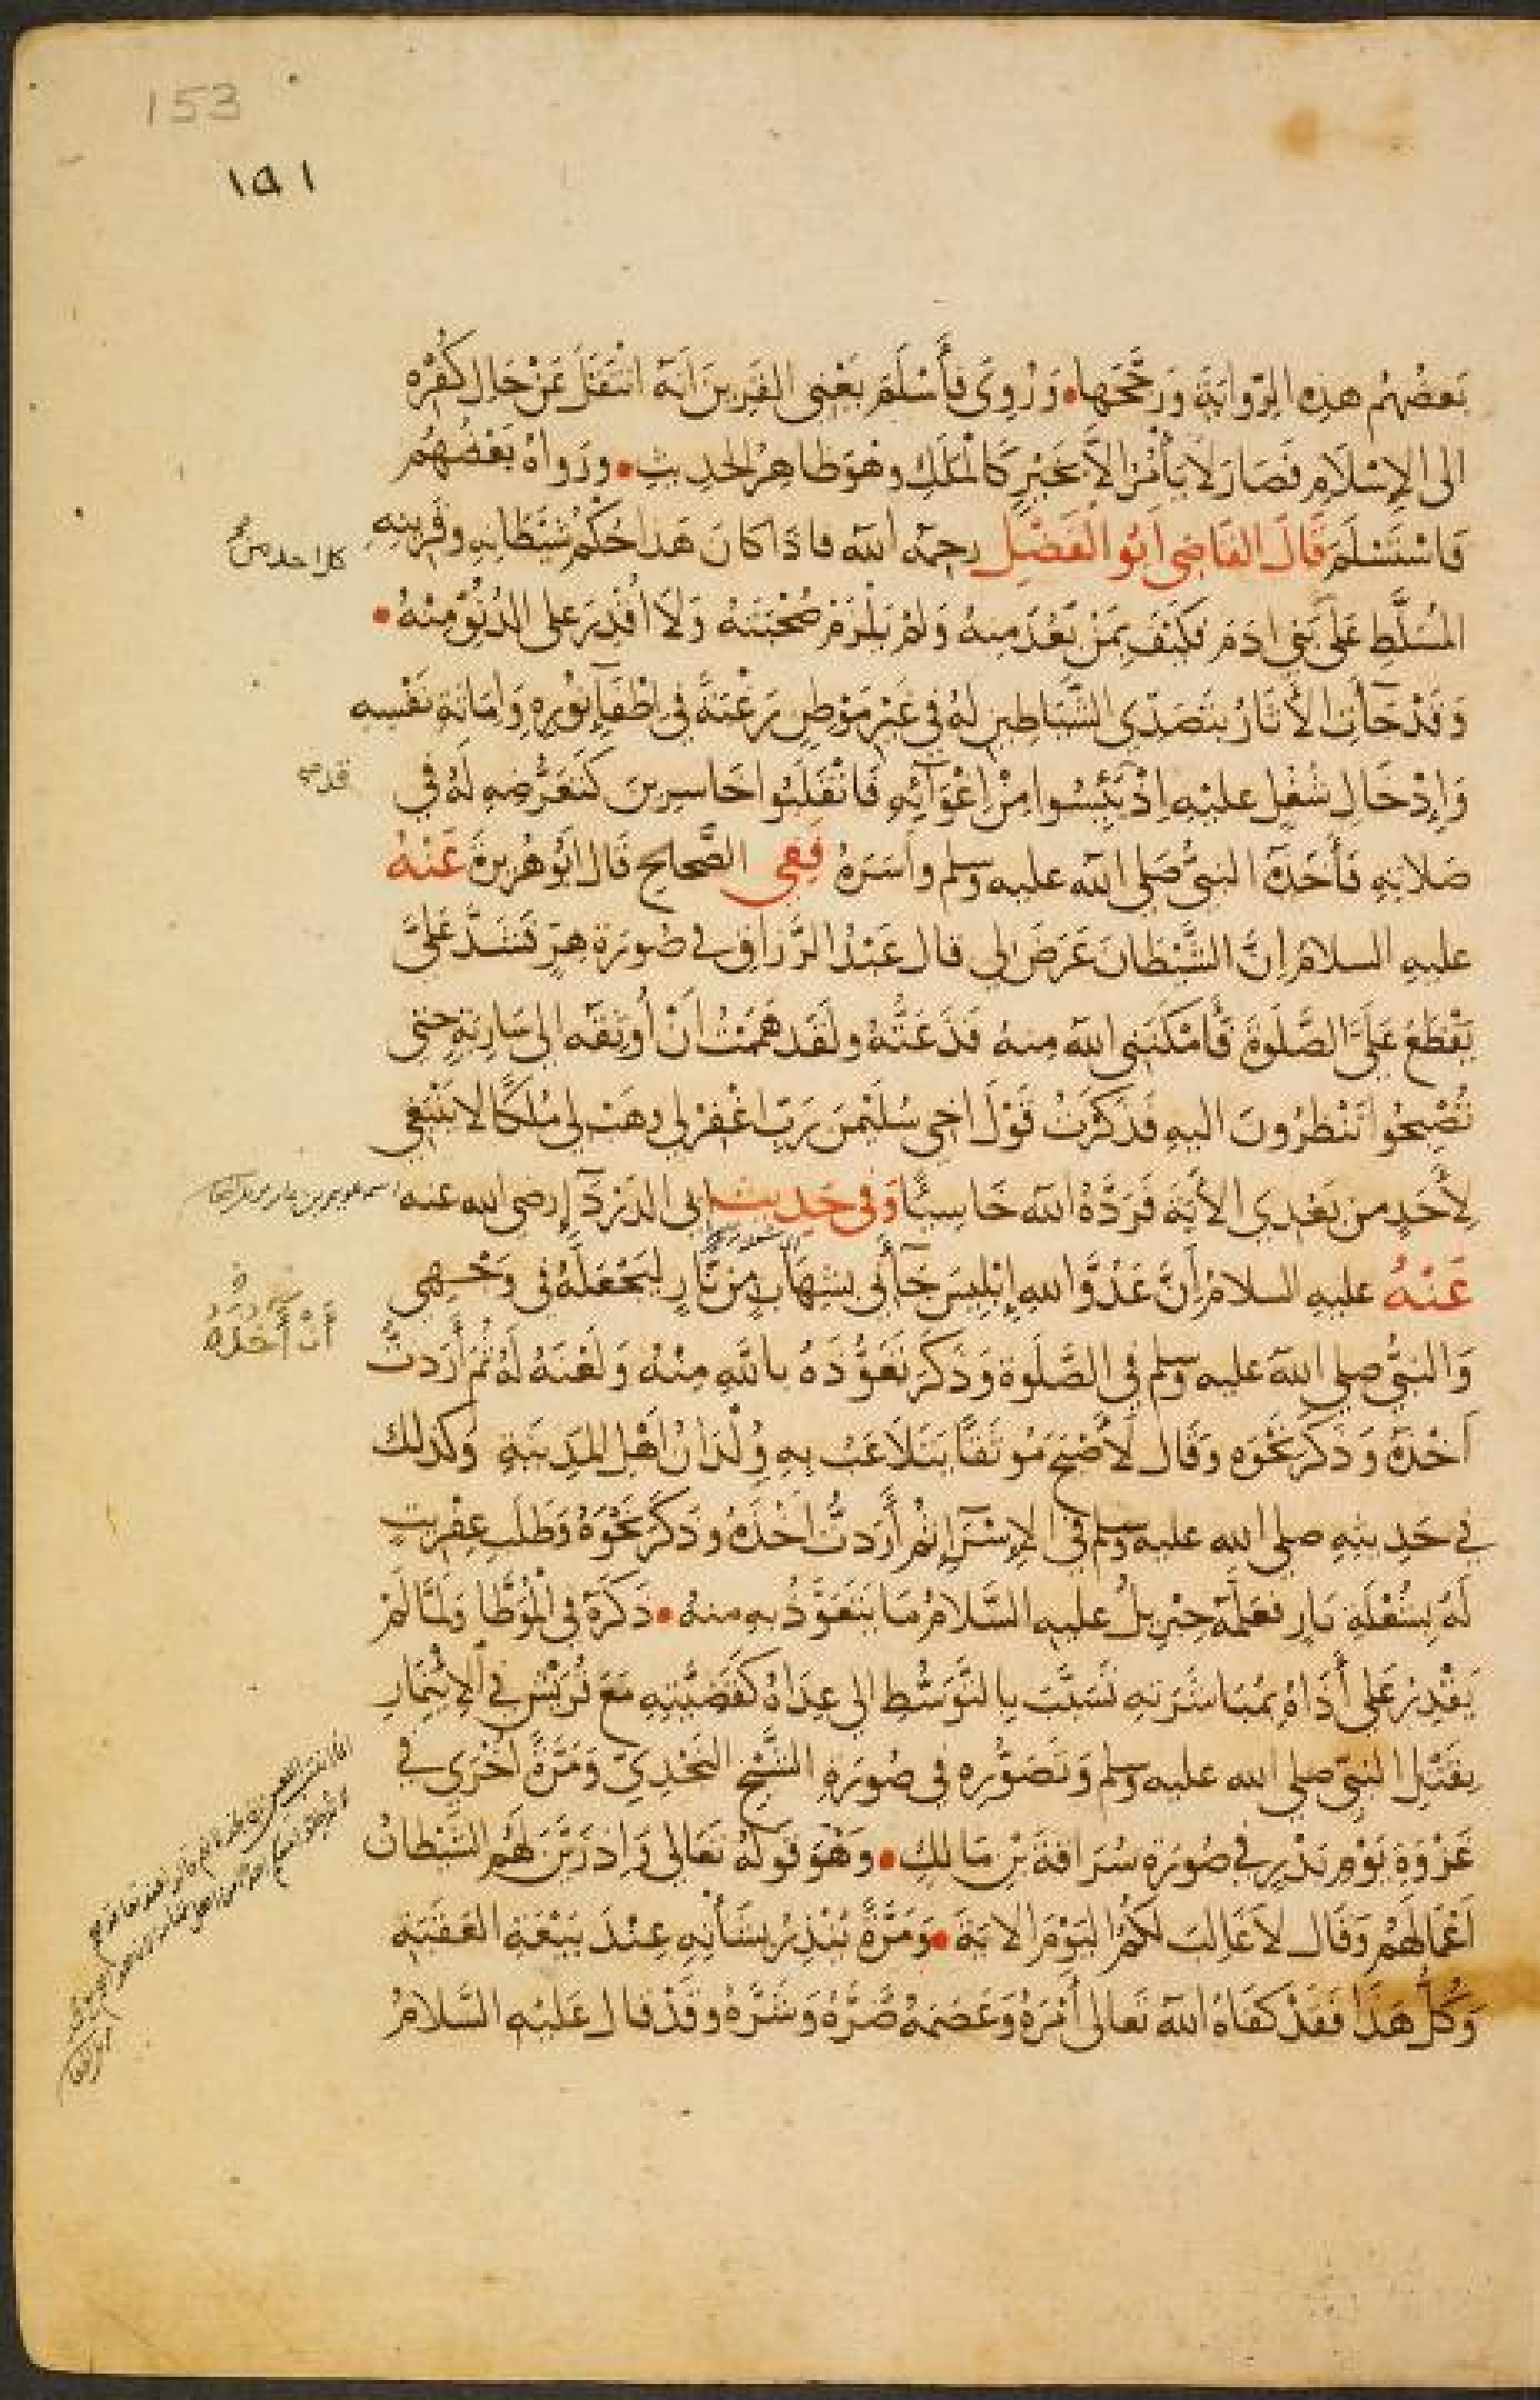 153
١٥١
بَعضُهُم هذِه الرِّوايَةَ وَرَجَّحَها • وَرُوِيَ فأَسْلَمَ يَعْنِي القَرِينَ انَّهُ انْتَقَلَ عَنْ حَالِ كُفْرِه
الى الإِسْلَامِ فَصَارَ لاَ يَأْمُرُ الاَّ بخَيْرٍ كَالمَلَكِ وهُوَ ظاهِرُ الحديثِ • وَرَواهُ بَعْضُهُم
فَاسْتَسْلَمَ قَالَ القَاضِي اَبُو الفَضْلِ رحِمَهُ اللهُ فاذَا كانَ هَذا حُكْمُ شيْطانِهِ وقَرِينِهِ
المُسَلَّطِ عَلَى بَنِي ادَمَ فكَيْفَ بِمَنْ بَعُدَ مِنهُ وَلَمْ يَلْزَمْ صُحْبَتَهُ وَلاَ اُقْدِرَ على الدُّنُوِّ مِنْهُ •
وَقَدْ جَآءَتِ الأَثَارُ بتَصَدِّي الشَّيَاطِينِ لَهُ في غَيْرِ مَوْطِنٍ رَغْبَةً فِي اِطْفَآءِ نُورِهِ وَاِمَاتَةِ نَفْسِهِ
وَاِدْخَالِ شُغْلٍ عليْهِ اِذْ يَئِسُوا مِنْ اِغْوَآئِهِ فَانْقَلَبُوا خَاسِرِينَ كَتَعَرُّضِهِ لَهُ في
صَلاتِهِ فَأَخَذَهُ النبيُّ صَلى اللهُ عليه وسلم واَسَرَهُ فِفِي الصِّحاحِ قَال اَبُو هُرَيرةَ عَنْهُ
عليهِ السلامُ اِنَّ الشَّيْطَانَ عَرَضَ لي قال عَبْدُ الرَّزاقِ في صُورَةِ هِرٍّ فَشَدَّ عَلَيَّ
يَقْطَعُ عَلَيَّ الصَّلَوةَ فَأَمْكَنَنِي اللهُ مِنهُ فَذَعَتُّهُ ولَقَد هَمَمْتُ اَنْ أُوثِقَهُ الى سَارِيَةٍ حتى
تُصْبِحُوا تَنْظُرُونَ اليهِ فَذَكَرْتُ قَوْلَ اخِي سُلَيْمَنَ رَبِّ اغْفِرْ لِي وهَبْ لِي مُلْكًا لا يَنْبَغِي
لِأَحَدٍ مِن بَعْدِي الأيَةَ فَرَدَّهُ اللهُ خَاسِئًا وَفي حَدِيث ابي الدَّرْدَآءِ رضي الله عنه
عَنْهُ عليهِ السلامُ اَنَّ عَدُوَّ اللهِ اِبْلِيسَ جَآءَنِي بشِهَابٍ مِن نَّارٍ لِيَجْعَلَهُ في وَجْهِي
وَالنبيُّ صلى اللهُ عليه وسلم في الصَّلَوةِ وَذَكَرَ تَعَوُّذَهُ باللهِ مِنْهُ وَلَعْنَهُ لَهُ ثُمَّ أَرَدتُّ
اَخْذَهُ وَذَكَرَ نَحْوَهُ وَقَالَ لَأَصْبَحَ مُوثَقًا يَتَلاَعَبُ بِهِ وِلْدَانُ اَهْلِ المَدِينَةِ وَكذلكَ
في حَدِيثِهِ صلى الله عليه وسلم في الإِسْرَآءِ ثُمَّ أَرَدتُّ اَخْذَهُ وذَكَرَ نَحْوَهُ وَطَلَبِ عِفْرِيتٍ
لَهُ بِشُعْلَةِ نَارٍ فعَلَّمَهُ جِبْرِيلُ عليهِ السَّلامُ مَا يَتَعَوَّذُ بهِ مِنهُ • ذَكَرَهُ فِي المُوَطَّا وَلَمَّا لَمْ
يَقْدِرْ عَلَى أَذَاهُ بمُبَاشَرَتِهِ تَسَبَّبَ بالتَّوَسُّطِ الى عِدَاهُ كَقَضِيَّتِهِ مَعَ قُرَيْشٍ في الإِئْتِمَارِ
بقَتْلِ النبيِّ صلى الله عليه وسلم وَتَصَوُّرِهِ فِي صُورَةِ الشَّيْخِ النَّجْدِيِّ وَمَرَّةً اُخْرَى في
غَزْوَةِ يَوْمِ بَدْرٍ في صُورَةِ سُرَاقَةَ بْنِ مَالِكٍ • وَهُوَ قَولُهُ تَعَالى وَاِذ زَيَّنَ لَهُمُ الشَّيْطانُ
اَعْمَالَهُمْ وَقَالَ لاَ غَالِبَ لَكُمُ اليَوْمَ الايَةَ • وَمَرَّةً يُنْذِرُ بشَأْنِهِ عِنْدَ بَيْعَةِ العَقَبَةِ
وَكُلُّ هَذَا فَقَدْ كَفَاهُ اللهُ تَعالى أَمْرَهُ وَعَصَمَهُ ضُرَّهُ وَشَرَّهُ وقَدْ قال عَلَيْهِ السَّلامُ
كل احد من
أَنْ آخُذَهُ